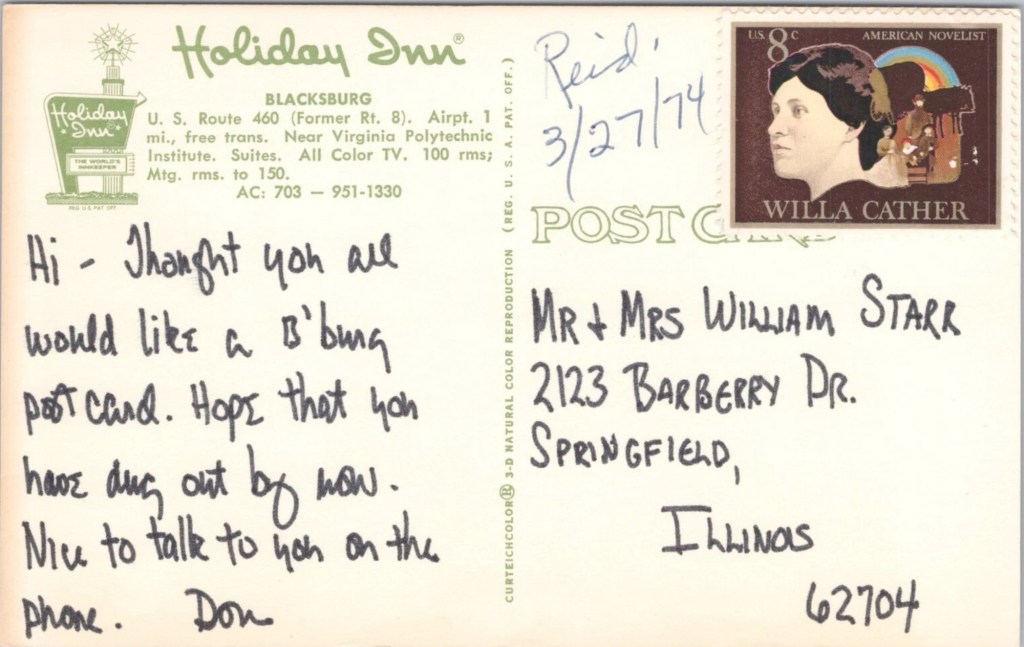 Holiday Inn®
Holiday
Inn®
THE WORLD'S
INNKEEPER
REG U.S. PAT. OFF.
BLACKSBURG
U. S. Route 460 (Former Rt. 8). Airpt. 1
mi., free trans. Near Virginia Polytechnic
Institute. Suites. All Color TV. 100 rms;
Mtg. rms. to 150.
AC: 703 — 951-1330
Hi - Thought you all
would like a B'burg
post card. Hope that you
have dug out by now.
Nice to talk to you on the
phone. Don
CURTEICHCOLOR® 3-D NATURAL COLOR REPRODUCTION (REG. U. S. A. PAT. OFF.)
Reid.
3/27/74
U.S. 8c AMERICAN NOVELIST
WILLA CATHER
POST CARD
MR + MRS WILLIAM STARR
2123 BARBERRY DR.
SPRINGFIELD,
ILLINOIS
62704